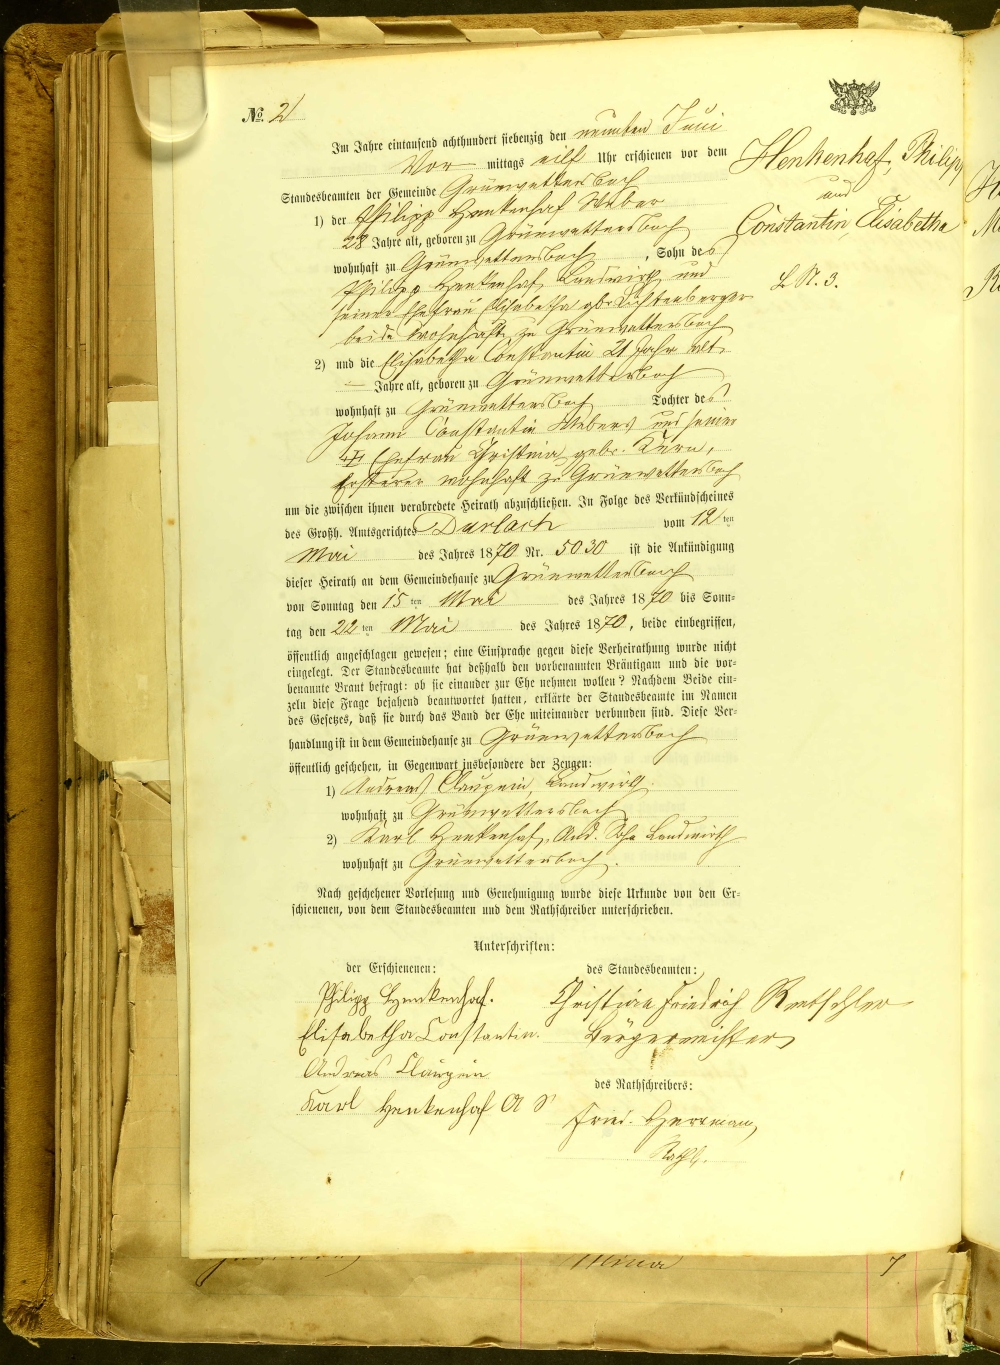 No. 2
Im Jahre eintausend achthundert siebenzig den neunten Juni
Vor mittags eilf Uhr erschienen vor dem
Standesbeamten der Gemeinde Grünwettersbach
Henkenhaf, Philipp
und
Constantin, Elisabetha
L N. 3.
1) der Philipp Henkenhaf Weber
28 Jahre alt, geboren zu Grünwettersbach
wohnhaft zu Grünwettersbach, Sohn des
Philipp Henkenhaf Landwirth und
seiner Ehefrau Elisabetha geb. Lichtenberger
beide wohnhaft zu Grünwettersbach
2) und die Elisabetha Constantin 21 Jahr alt.
— Jahre alt, geboren zu Grünwettersbach
wohnhaft zu Grünwettersbach Tochter des
Johann Constantin Webers und seiner
Ehefrau Christina gebr. Kern,
Ersterer wohnhaft zu Grünwettersbach
um die zwischen ihnen verabredete Heirath abzuschließen. In Folge des Verkündscheines
des Großh. Amtsgerichtes Durlach vom 12ten
Mai des Jahres 1870 Nr. 5030 ist die Ankündigung
dieser Heirath an dem Gemeindehause zu Grünwettersbach
von Sonntag den 15ten Mai des Jahres 1870 bis Sonn-
tag den 22ten Mai des Jahres 1870, beide einbegriffen,
öffentlich angeschlagen gewesen; eine Einsprache gegen diese Verheirathung wurde nicht
eingelegt. Der Standesbeamte hat deßhalb den vorbenannten Bräutigam und die vor-
benannte Braut befragt: ob sie einander zur Ehe nehmen wollen? Nachdem Beide ein-
zeln diese Frage bejahend beantwortet hatten, erklärte der Standesbeamte im Namen
des Gesetzes, daß sie durch das Band der Ehe miteinander verbunden sind. Diese Ver-
handlung ist in dem Gemeindehause zu Grünwettersbach
öffentlich geschehen, in Gegenwart insbesondere der Zeugen:
1) Andreas Claupein, Landwirth
wohnhaft zu Grünwettersbach
2) Karl Henkenhaf, And. Sohn Landwirth
wohnhaft zu Grünwettersbach.
Nach geschehener Vorlesung und Genehmigung wurde diese Urkunde von den Er-
schienenen, von dem Standesbeamten und dem Rathschreiber unterschrieben.
Unterschriften:
der Erschienenen:
Philipp Henkenhaf.
Elisabetha Constantin.
Andreas Claupein
Karl Henkenhaf A S
des Standesbeamten:
Christian Friedrich Rentschler
Bürgermeister
des Rathschreibers:
Fried. Herrman,
Rathsch.
7